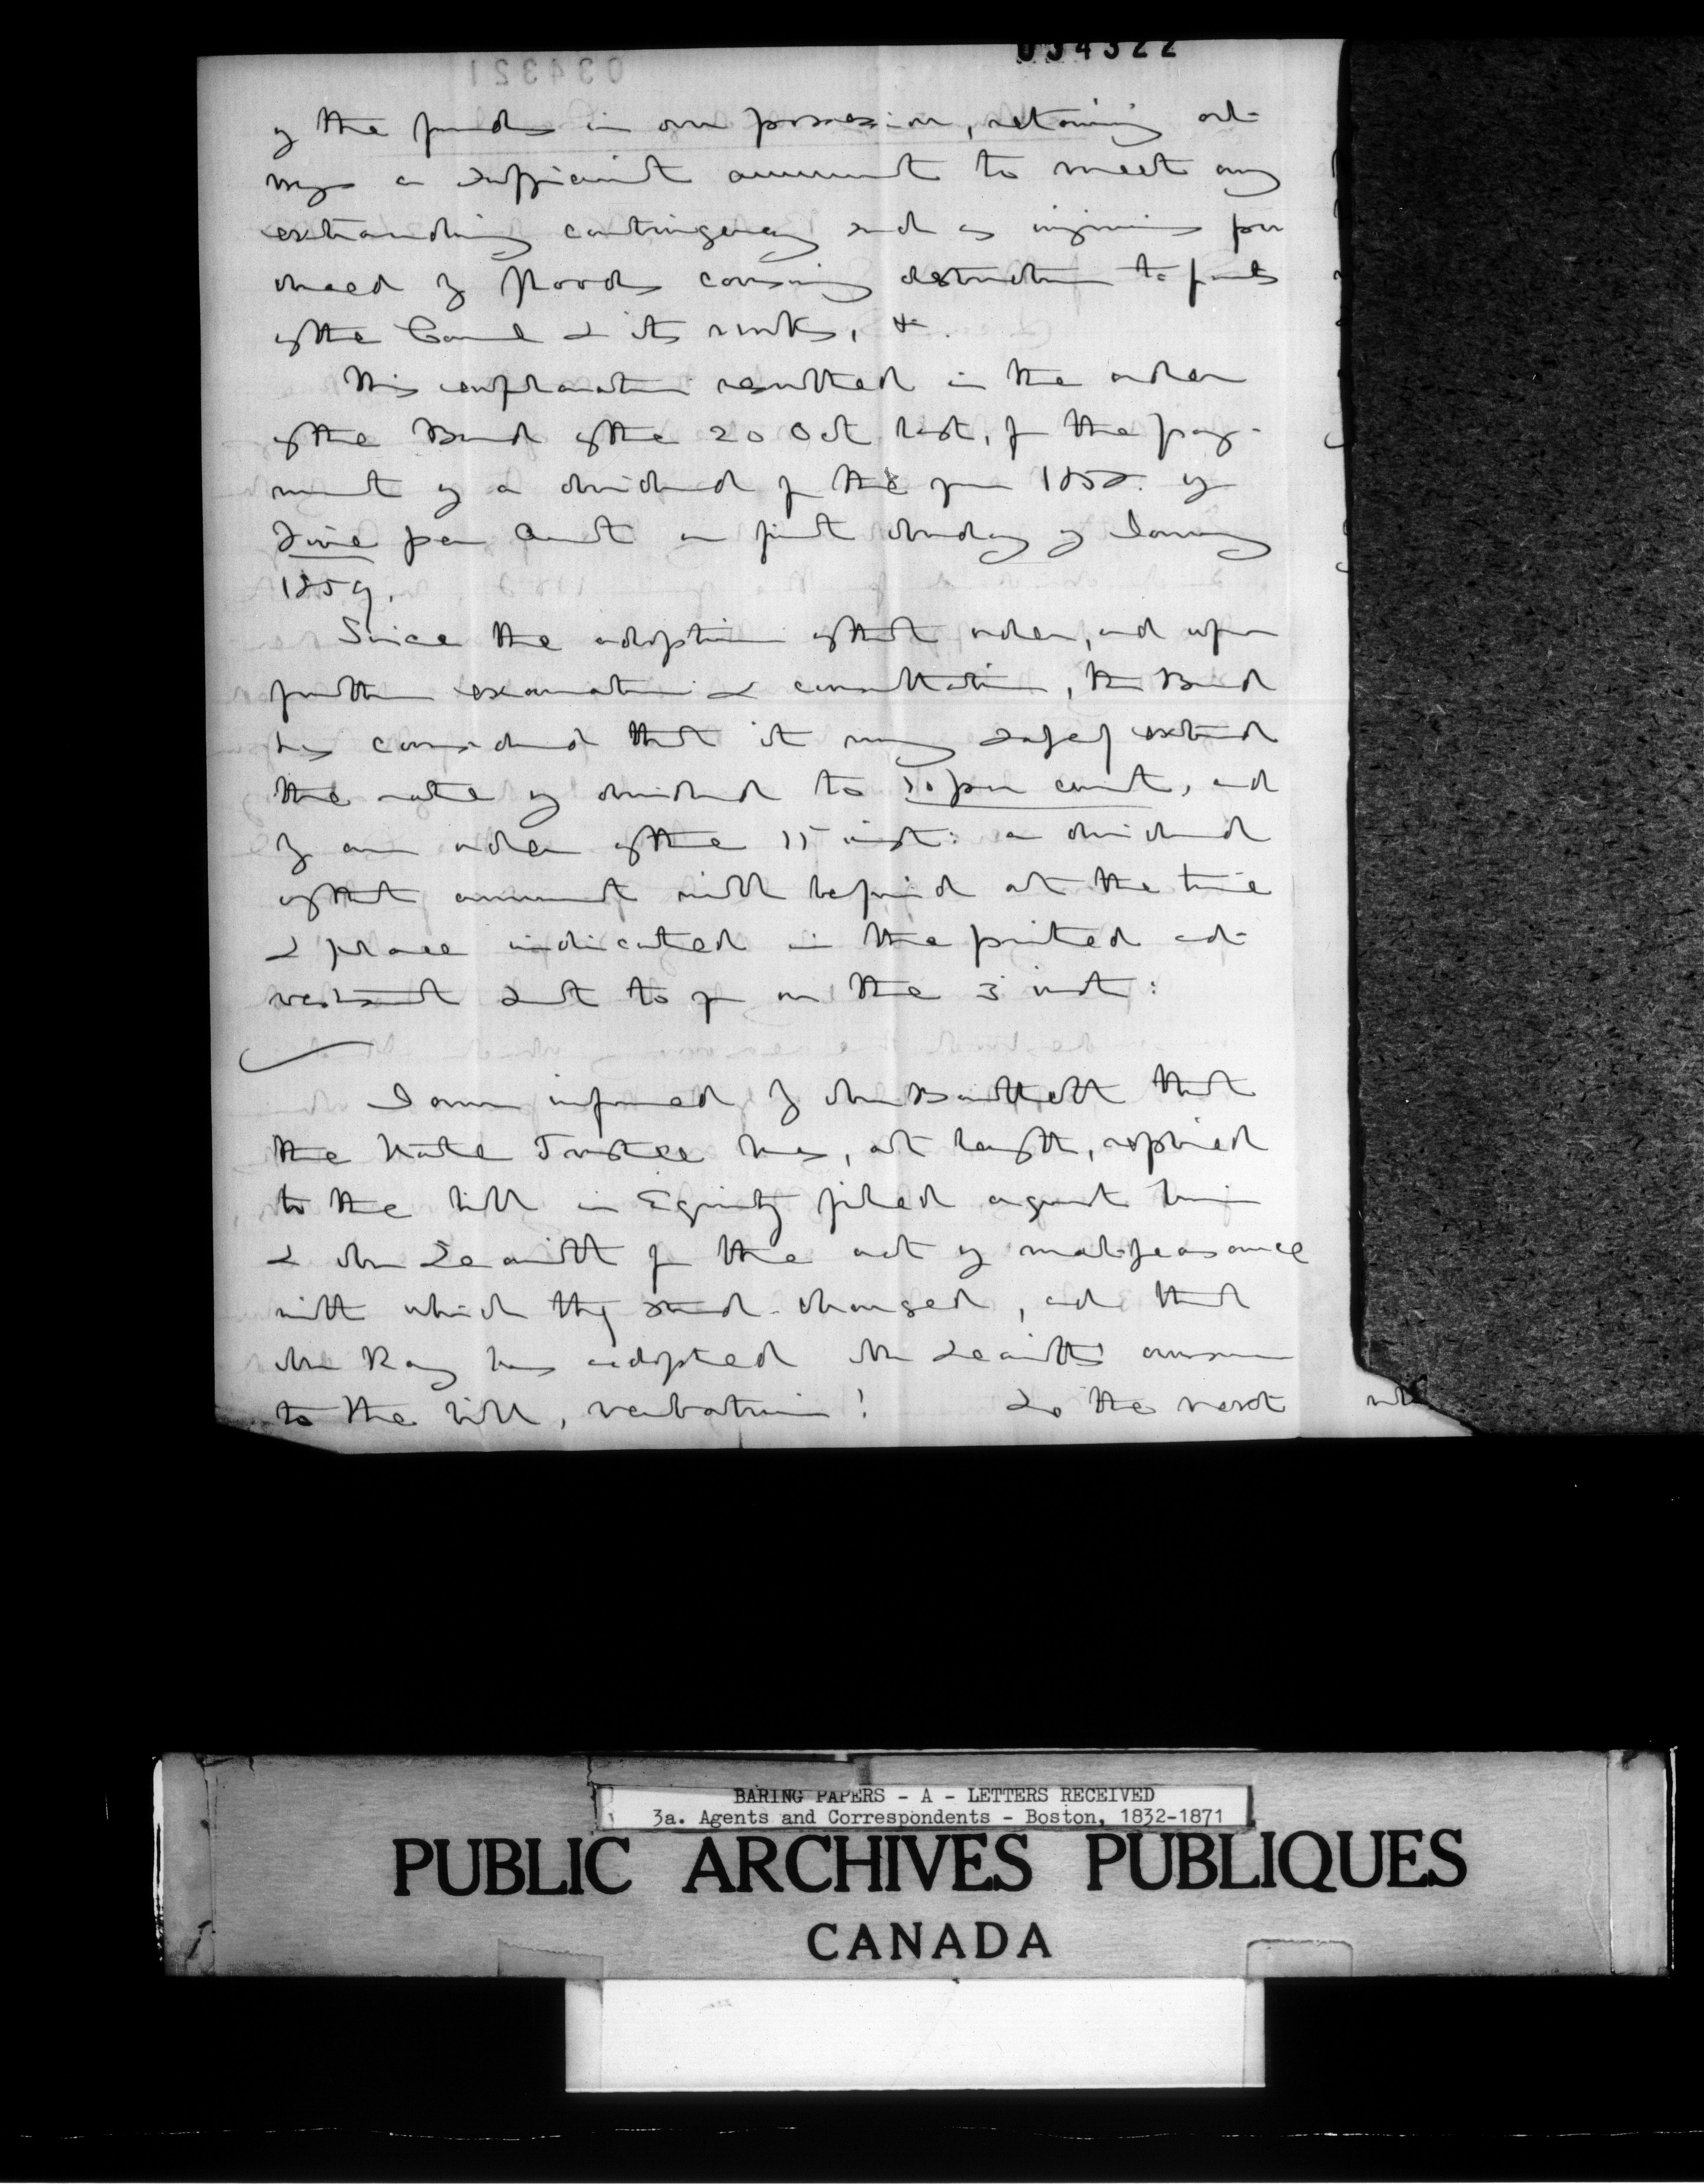 034322
034321
of the funds in our possession, retaining al-
ways a sufficient amount to meet any
extraordinary contingency such as injuries pro
duced by floods causing destruction to parts
of the Canal & its works, &c.
This explanation resulted in the order
of the Board of the 20 Oct last, for the pay-
ment of a dividend for the year 1858. of
Five per Cent on first Monday of January
1859.
Since the adoption of that order, and upon
further examination & consultation, the Board
has considered that it may safely extend
the rate of dividend to 10 per cent, and
by an order of the inst: a dividend
of that amount will be paid at the time
& place indicated in the printed ad-
vertisement sent to you on the 3 inst:
I am informed by Mr Bartlett that
the State Trustee has, at length, replied
to the bill in Equity filed against him
& Mr Leavitt for the act of malfeasance
with which they stand charged, and that
Mr Ray has adopted Mr Leavitts answer
to the bill, verbatim! So the next
BARING PAPERS - A - LETTERS RECEIVED
3a. Agents and Correspondents - Boston, 1832-1871
PUBLIC ARCHIVES PUBLIQUES
CANADA